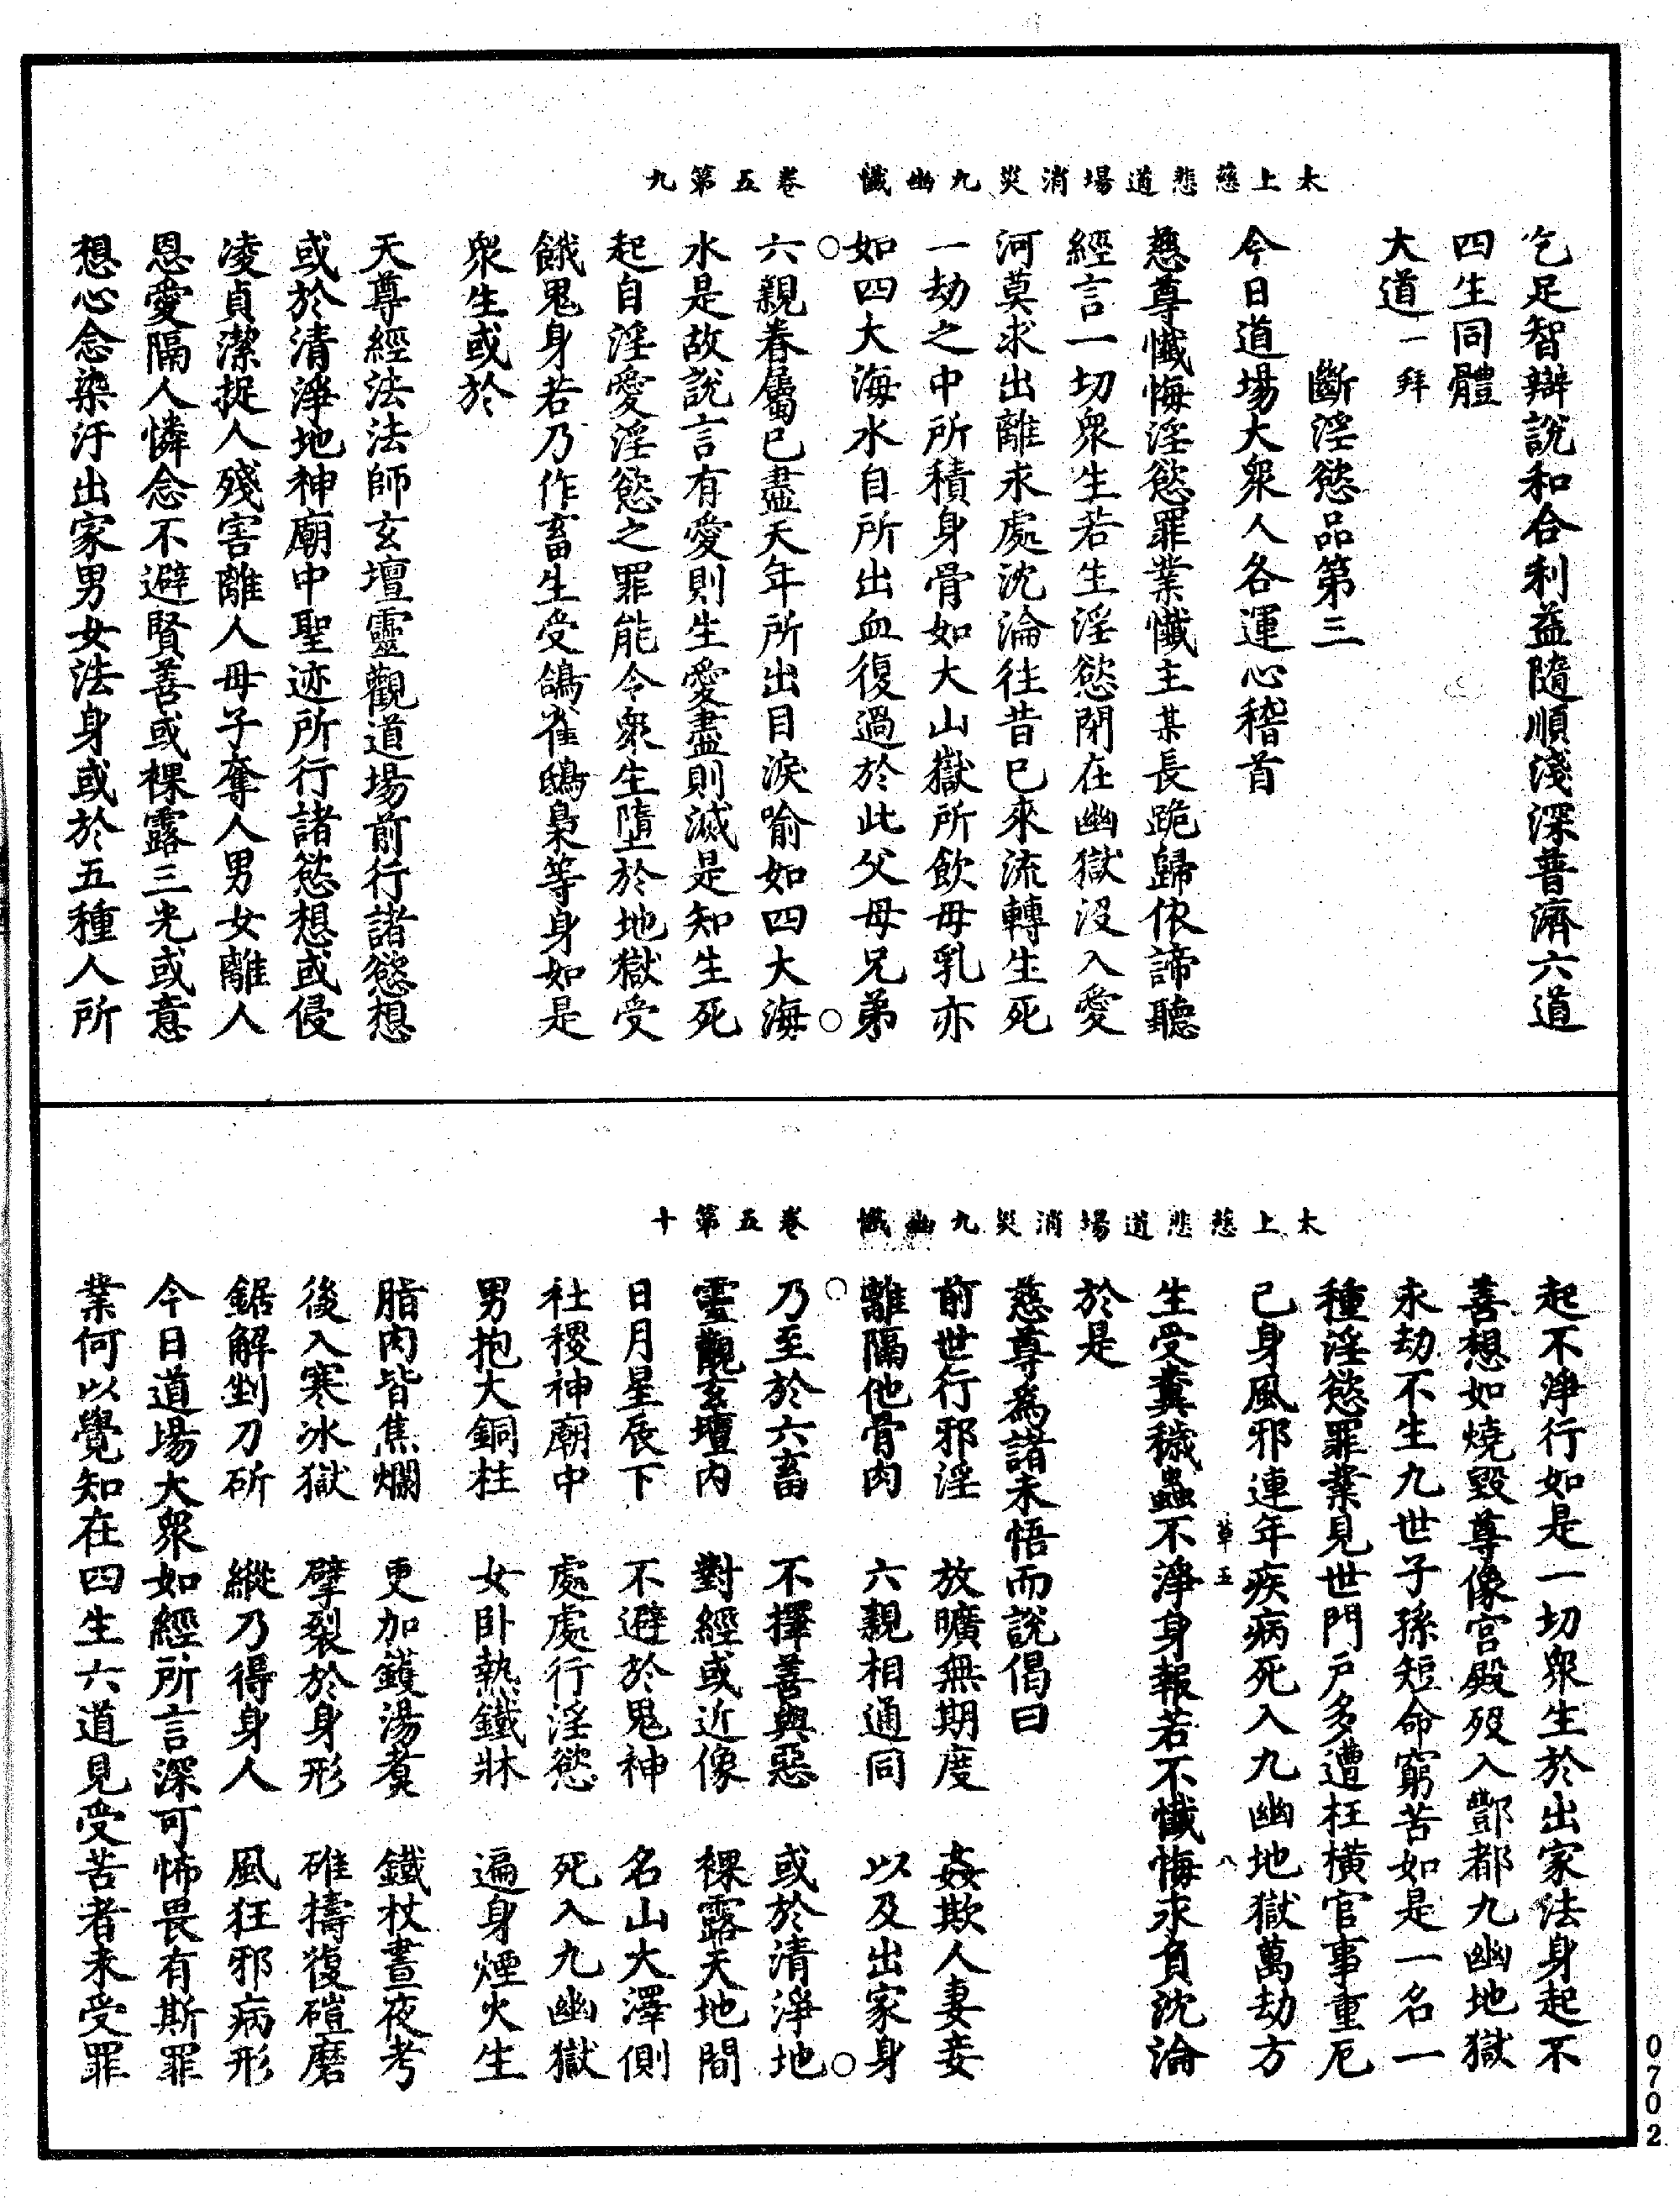 太上慈悲道場消災九幽懺　卷五第九
乞足智辯說和合利益隨順淺深普濟六道
四生同體
大道一拜
斷淫慾品第三
今日道場大衆人各運心稽首
慈尊懺悔淫慾罪業懺主某長跪歸依諦聽
經言一切衆生若生淫慾閉在幽獄沒入愛
河莫求出離永處沈淪往昔已來流轉生死
一劫之中所積身骨如大山嶽所飲母乳亦
如四大海水自所出血復過於此父母兄弟
六親眷屬已盡天年所出目淚喻如四大海
水是故說言有愛則生愛盡則滅是知生死
起自淫愛淫慾之罪能令衆生墮於地獄受
餓鬼身若乃作畜生受鴿雀鴟梟等身如是
衆生或於
天尊經法法師玄壇靈觀道場前行諸慾想
或於清淨地神廟中聖迹所行諸慾想或侵
凌貞潔捉人殘害離人母子奪人男女離人
恩愛隔人憐念不避賢善或裸露三光或意
想心念染汙出家男女法身或於五種人所
太上慈悲道場消災九幽懺　卷五第十
起不淨行如是一切衆生於出家法身起不
善想如燒毀尊像宮殿歿入酆都九幽地獄
永劫不生九世子孫短命窮苦如是一名一
種淫慾罪業見世門戶多遭枉橫官事重厄
己身風邪連年疾病死入九幽地獄萬劫方
草五　八
生受糞穢蟲不淨身報若不懺悔永負沈淪
於是
慈尊為諸未悟而說偈曰
前世行邪淫　放曠無期度　姦欺人妻妾
離隔他骨肉　六親相通同　以及出家身
乃至於六畜　不擇善與惡　或於清淨地
靈觀玄壇內　對經或近像　裸露天地間
日月星辰下　不避於鬼神　名山大澤側
社稷神廟中　處處行淫慾　死入九幽獄
男抱大銅柱　女臥熱鐵牀　遍身煙火生
脂肉皆焦爛　更加鑊湯煮　鐵杖晝夜考
後入寒冰獄　擘裂於身形　碓擣復磑磨
鋸解剉刀斫　縱乃得身人　風狂邪病形
今日道場大衆如經所言深可怖畏有斯罪
業何以覺知在四生六道見受苦者未受罪
0702